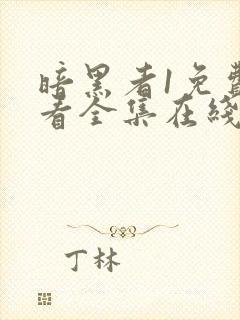 暗黑者1免費
看全集在綫
丁林